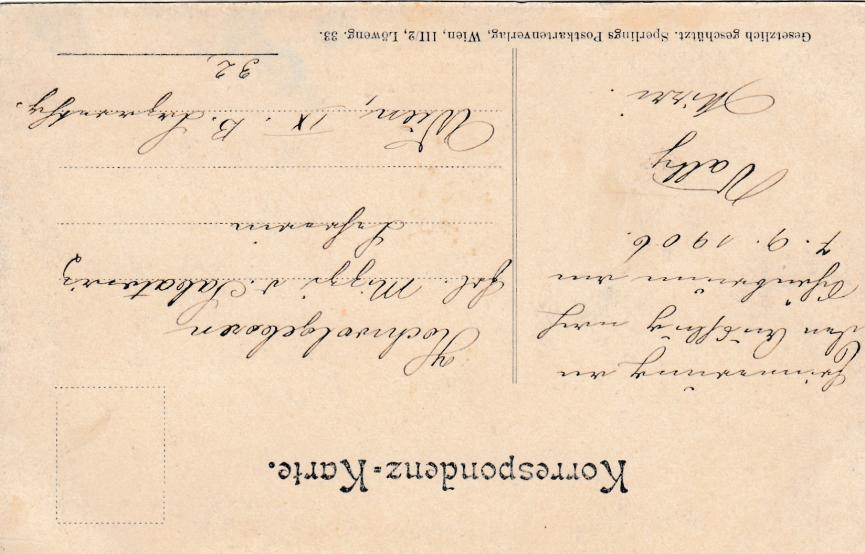 Korrespondenz-Karte.
Erinnerung an
den Ausflug nach
Schönbrunn am
7. 9. 1906.
Vally
Mizzi.
Hochwolgeboren
Frl. Mizzi v.
Lehrerin
Wien, IX. B.
32,
Gesetzlich geschützt. Sperlings Postkartenverlag, Wien, III/2, Löweng. 33.